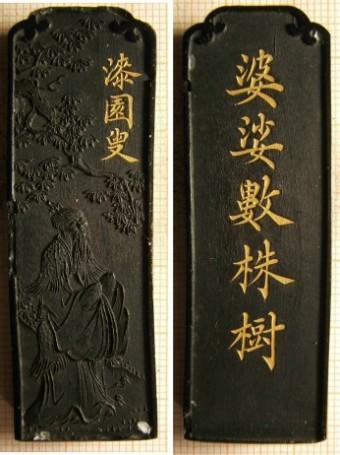 漆園叟
婆娑數株樹